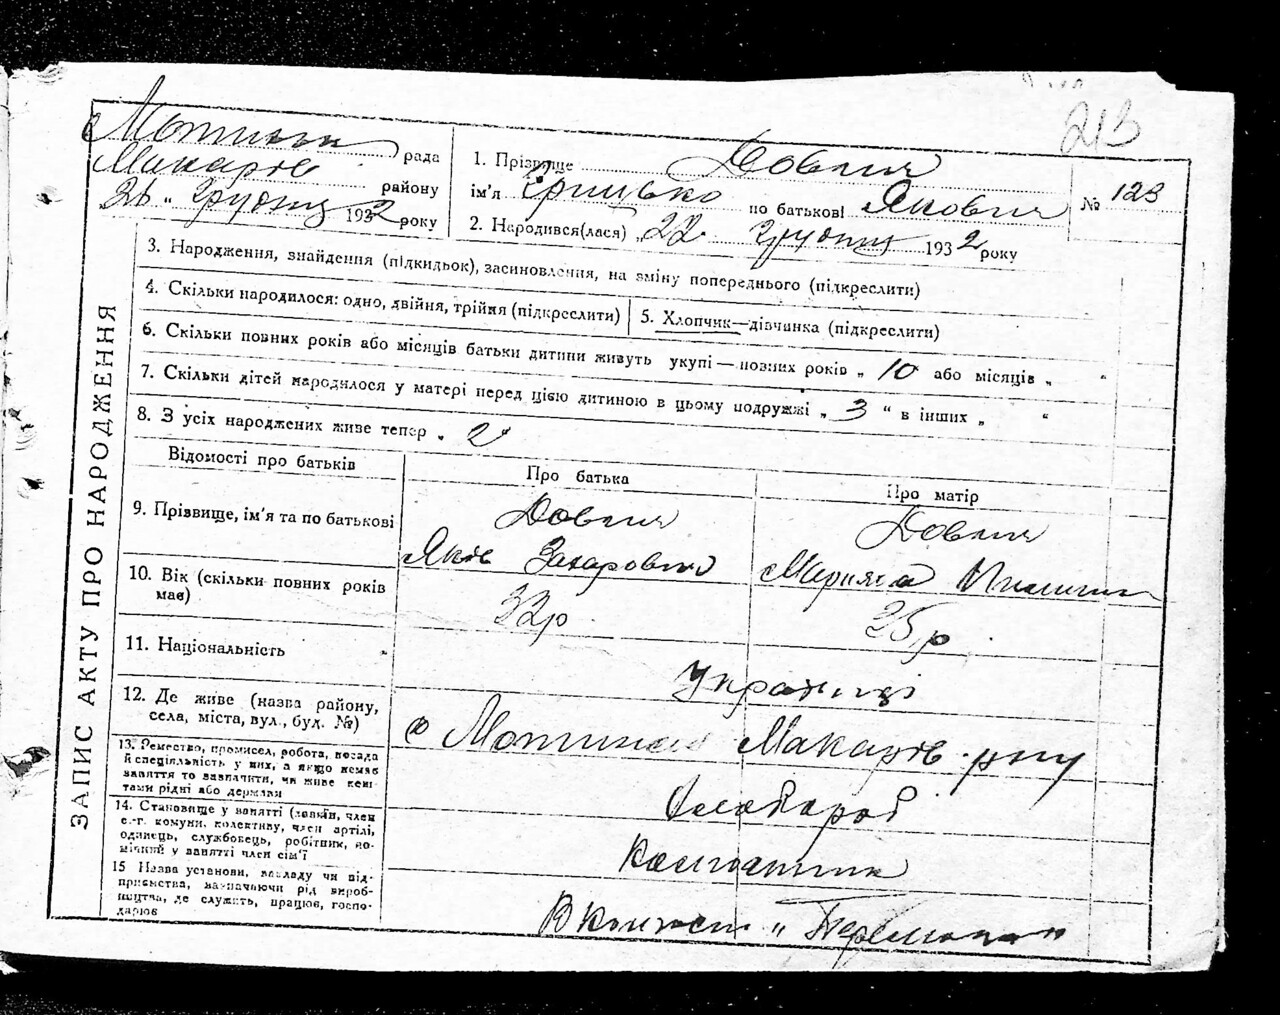 213
Мотижин рада
Макарів району
1. Прізвище Довгич
ім'я Грицько по батькові Якович
№ 123
28 „ Грудня 1932 року
2. Народився(лася) „ 22 грудня 1932 року
3. Народження, знайдення (підкидьок), засиновлення, на зміну попереднього (підкреслити)
4. Скільки народилося: одно, двійня, трійня (підкреслити)
5. Хлопчик—дівчинка (підкреслити)
6. Скільки повних років або місяців батьки дитини живуть укупі — повних років „ 10 або місяців „ “
7. Скільки дітей народилося у матері перед цією дитиною в цьому подружжі „ 3 “ в інших „ “
8. З усіх народжених живе тепер „ 2 “
ЗАПИС АКТУ ПРО НАРОДЖЕННЯ
Відомості про батьків
Про батька
Про матір
9. Прізвище, ім'я та по батькові
Довгич
Яків Захарович
Довгич
Марина
10. Вік (скільки повних років
має)
32 р
25 р
11. Національність
Українці
12. Де живе (назва району,
села, міста, вул., буд. №)
с Мотижин Макарів. р-ну
13. Ремество, промисел, робота, посада
й спеціяльність у них, а якщо немає
заняття то зазначити, чи живе кош-
тами рідні або держави
Хлібороб
14. Становище у занятті (хазяїн, член
с.-г. комуни, колективу, член артілі,
одинець, службовець, робітник, по-
мічний у занятті член сім'ї
Колгоспник
15 Назва установи, закладу чи під-
приємства, зазначаючи рід вироб-
ництва, де служить, працює, госпо-
дарює
В колгоспі „